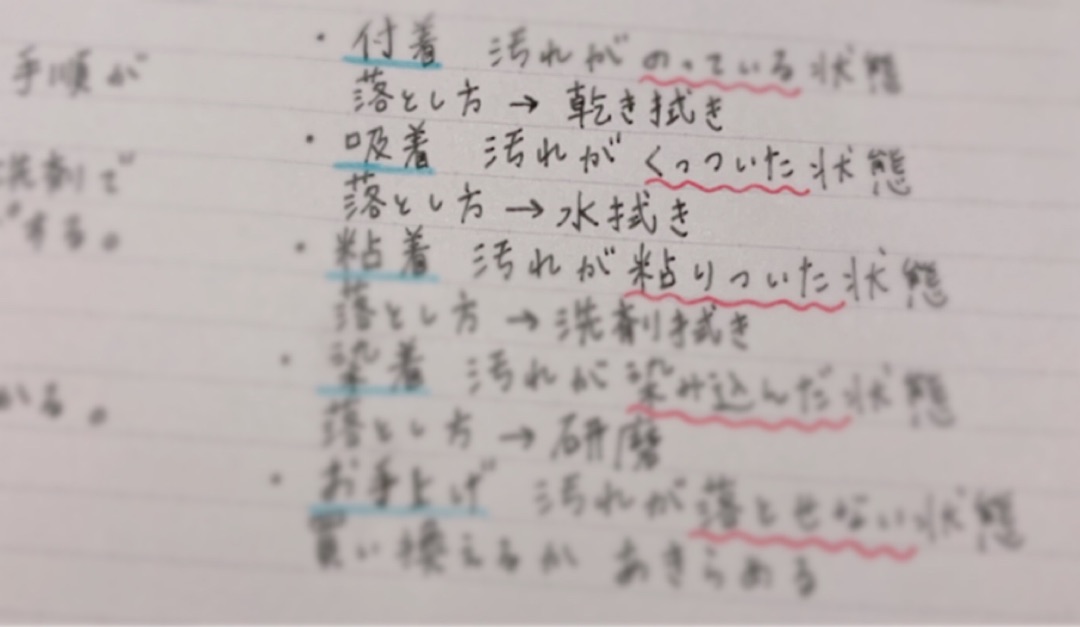 手順が
洗剤で
する。
いる。
・付着 汚れがのっている状態
落とし方→乾き拭き
・吸着 汚れがくっついた状態
落とし方→水拭き
・粘着 汚れが粘りついた状態
落とし方→洗剤拭き
・染着 汚れが染み込んだ状態
落とし方→研磨
・お手上げ 汚れが落とせない状態
買い換えるか あきらめる